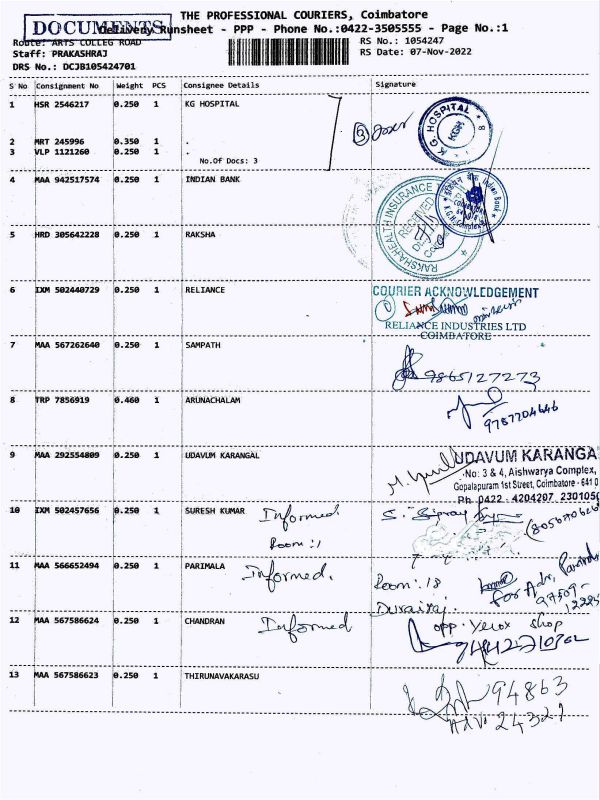 THE PROFESSIONAL COURIERS, Coimbatore
DOCUMENTS
Delivery Runsheet - PPP - Phone No.:0422-3505555 - Page No.:1
Route: ARTS COLLEG ROAD
RS No.: 1054247
Staff: PRAKASHRAJ
RS Date: 07-Nov-2022
DRS No.: DCJB105424701
S No Consignment No Weight PCS Consignee Details Signature
1 HSR 2546217 0.250 1 KG HOSPITAL
K.G. HOSPITAL
KGH
8
3
2 MRT 245996 0.350 1 .
3 VLP 1121260 0.250 1 .
No.Of Docs: 3
4 MAA 942517574 0.250 1 INDIAN BANK
Indian Bank
RAKSHA HEALTH INSURANCE
RECEIVED
5 HRD 305642228 0.250 1 RAKSHA
6 IXM 502440729 0.250 1 RELIANCE
COURIER ACKNOWLEDGEMENT
RELIANCE INDUSTRIES LTD
COIMBATORE
7 MAA 567262640 0.250 1 SAMPATH
9865127273
8 TRP 7856919 0.460 1 ARUNACHALAM
9787704646
9 MAA 292554809 0.250 1 UDAVUM KARANGAL
UDAVUM KARANGA
No: 3 & 4, Aishwarya Complex,
Gopalapuram 1st Street, Coimbatore - 641 0
Ph 0422 - 4204207 2301050
10 IXM 502457656 0.250 1 SURESH KUMAR Informed
Room :1
11 MAA 566652494 0.250 1 PARIMALA Informed.
Room: 18
for Adv,
97509-
Durairaj.
12 MAA 567586624 0.250 1 CHANDRAN Informed
opp. Yerox shop
13 MAA 567586623 0.250 1 THIRUNAVAKARASU
94863
24321